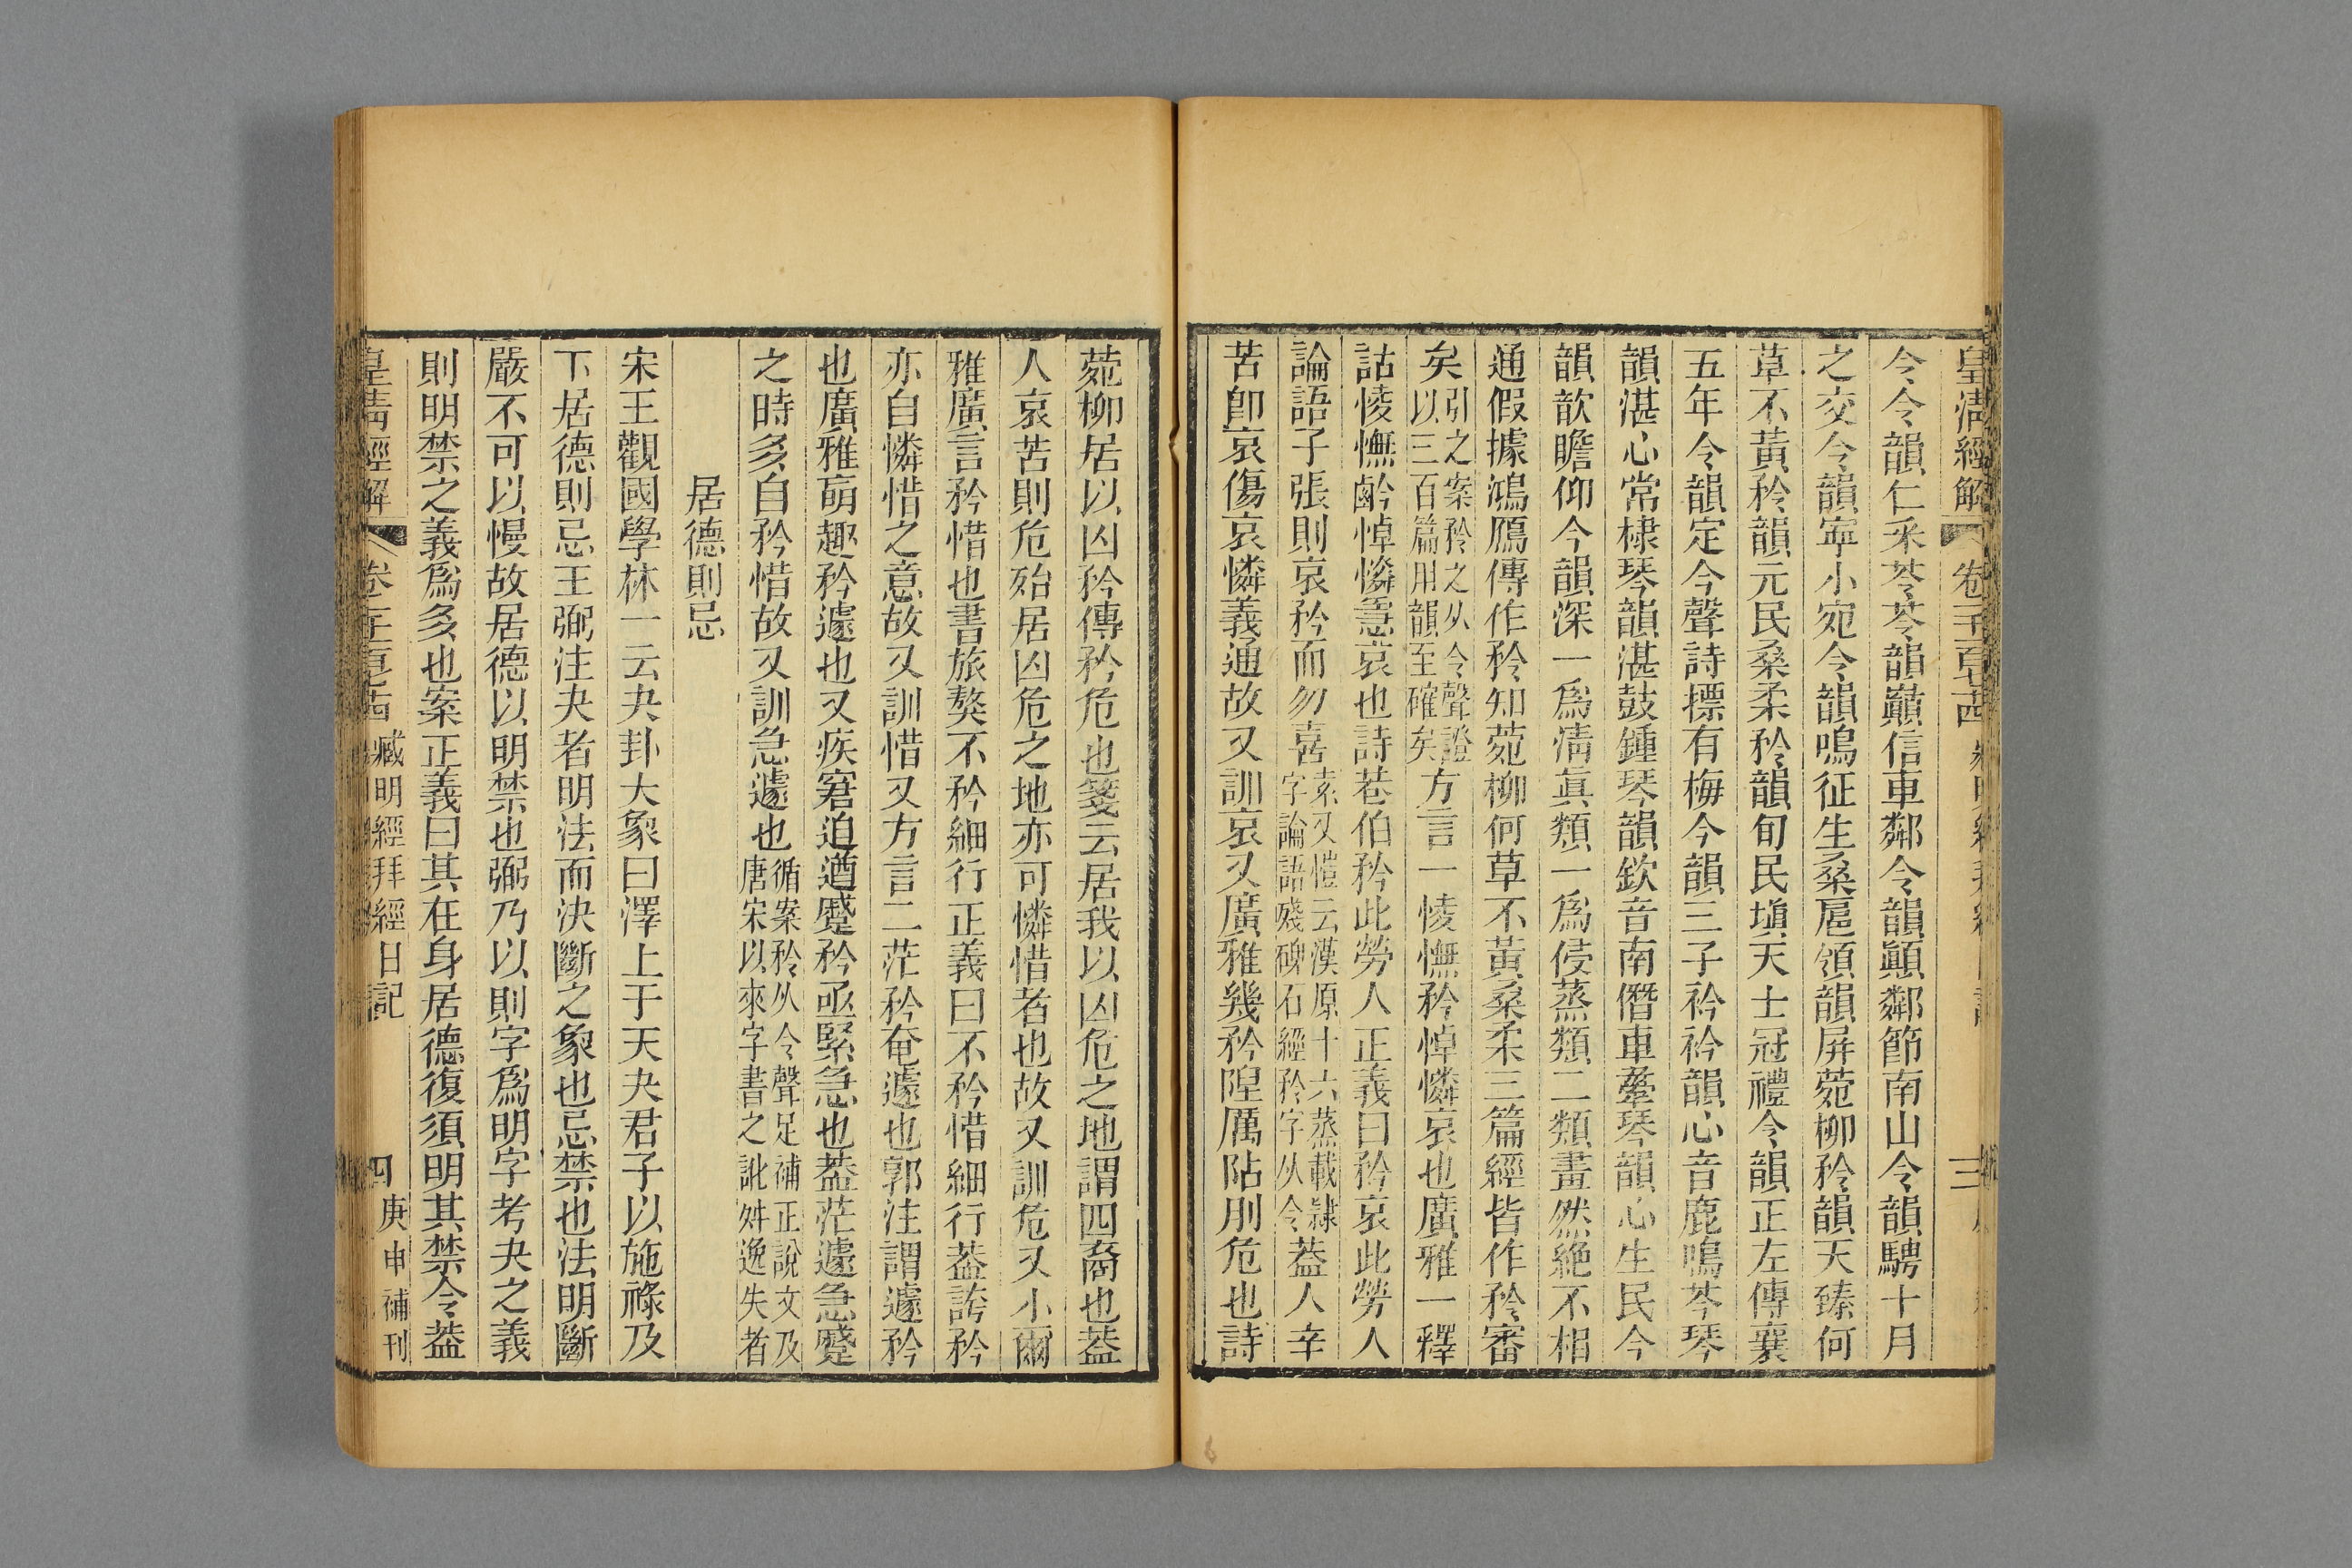 皇清經解
卷一千一百七十四
三
令令韻仁采苓苓韻巔信車鄰令韻顚鄰節南山令韻騁十月
之交令韻寧小宛令韻鳴征生桑扈領韻屏菀柳矜韻天臻何
草不黃矜韻元民桑柔矜韻旬民塡天士冠禮令韻正左傳襄
五年令韻定今聲詩摽有梅今韻三子衿衿韻心音鹿鳴芩琴
韻湛心常棣琴韻湛鼓鍾琴韻欽音南僭車舝琴韻心生民今
韻歆瞻仰今韻深一爲淸眞類一爲侵蒸類二類畫然絶不相
通假據鴻鴈傳作矜知菀柳何草不黃桑柔三篇經皆作矜審
矣引之案矜之从令聲證以三百篇用韻至確矣方言一㥄憮矜悼憐哀也廣雅一釋
詁㥄憮齡悼憐㥯哀也詩巷伯矜此勞人正義曰矜哀此勞人
論語子張則哀矜而勿喜素又愷云漢原十六蒸載隸字論語殘碑石經矜字从令葢人辛
苦卽哀傷哀憐義通故又訓哀又廣雅幾矜隉厲阽刖危也詩
菀柳居以凶矜傳矜危也箋云居我以凶危之地謂四裔也葢
人哀苦則危殆居凶危之地亦可憐惜者也故又訓危又小爾
雅廣言矜惜也書旅獒不矜細行正義曰不矜惜細行葢誇矜
亦自憐惜之意故又訓惜又方言二茫矜奄遽也郭注謂遽矜
也廣雅萌趣矜遽也又疾窘迫遒蹙矜亟緊急也葢茫遽急蹙
之時多自矜惜故又訓急遽也循案矜从令聲足補正說文及唐宋以來字書之訛舛逸失者
居德則忌
宋王觀國學林一云夬卦大象曰澤上于天夬君子以施祿及
下居德則忌王弼注夬者明法而決斷之象也忌禁也法明斷
嚴不可以慢故居德以明禁也弼乃以則字爲明字考夬之義
則明禁之義爲多也案正義曰其在身居德復須明其禁令葢
皇清經解
卷一千一百七十四
臧明經拜經日記
四
庚申補刊